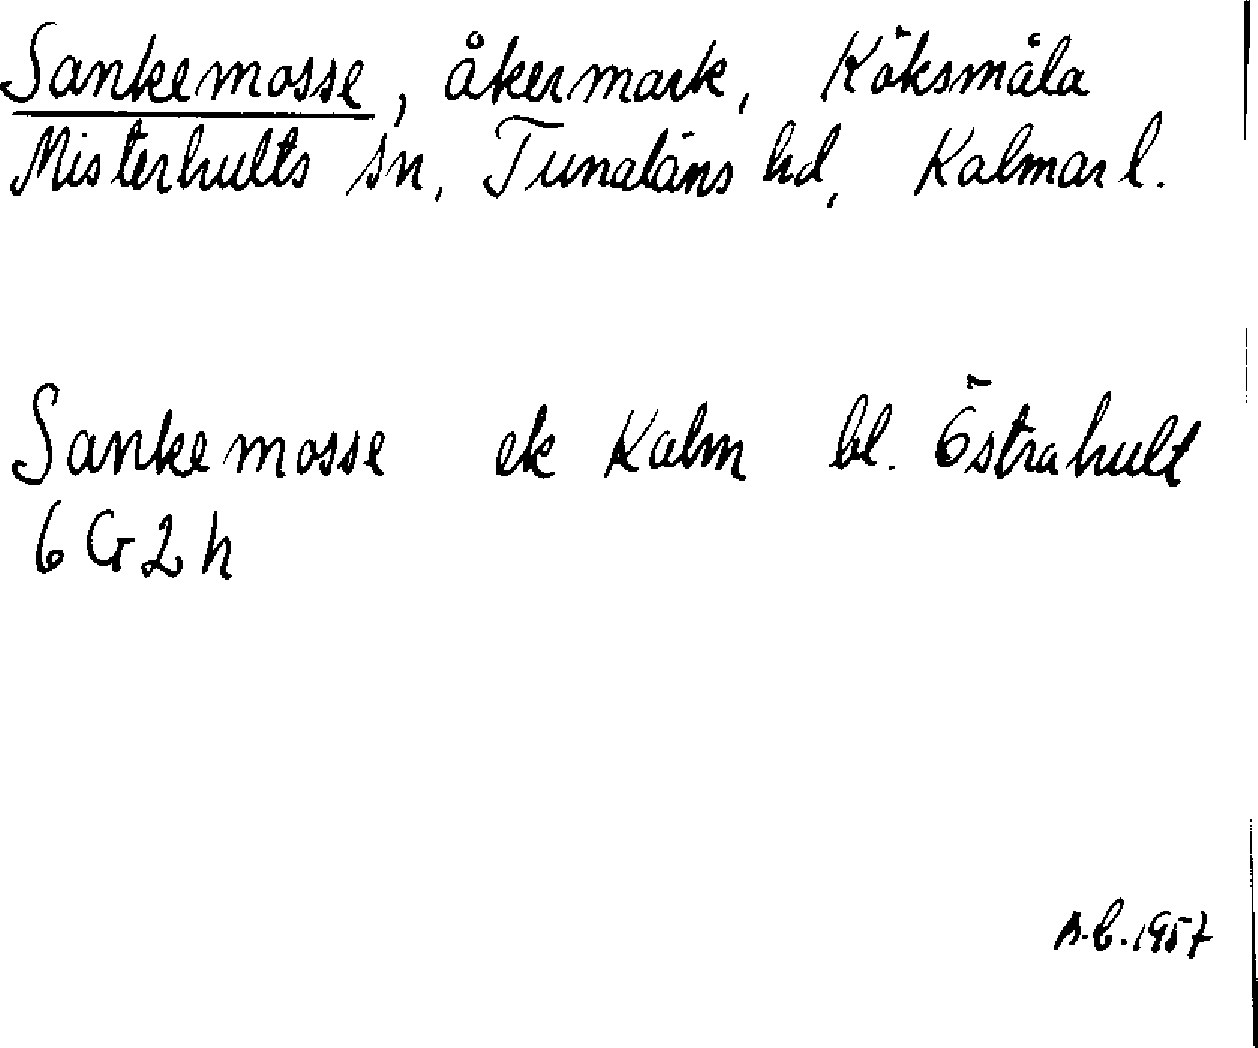 Sankemosse, åkermark, Köksmåla
Misterhults sn, Tunaläns hd, Kalmar l.
Sankemosse ek Kalm bl. Östrahult
6 G 2 h
A.B. 1957